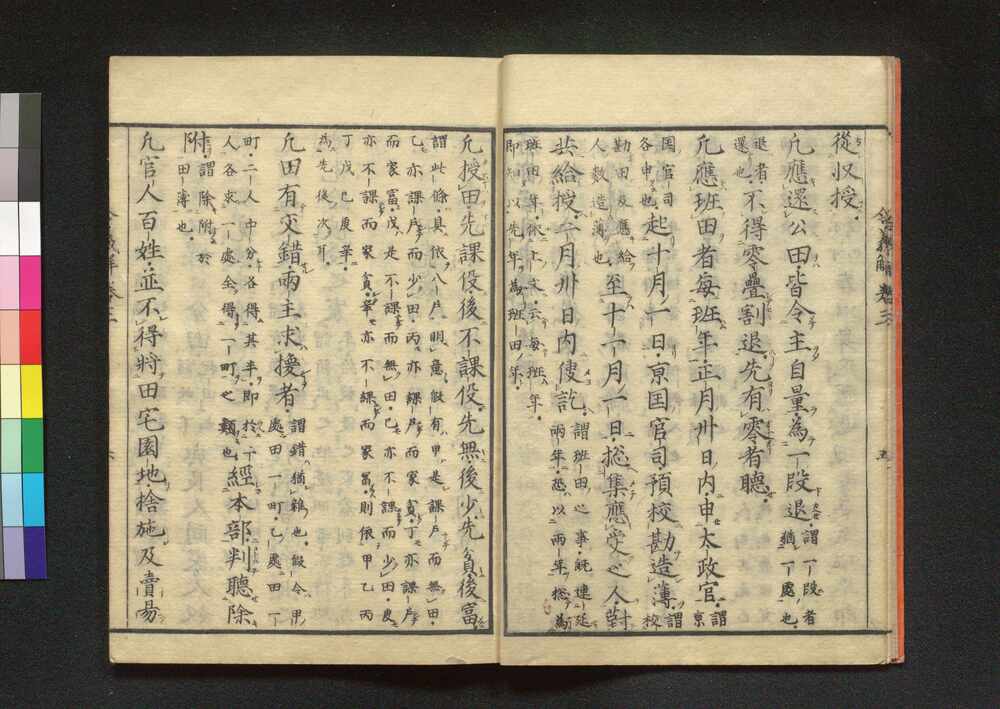 從収授。
凡應還公田皆令主自量爲一段退。謂一段者
猶一處也。
退者
還也。不得零疊割退先有零者聽。
凡應班田者毎班年正月卅日内申太政官。謂京
国官司
各申也。起十月一日京国官司預校勘造簿。謂校
勘田及應給
人數造簿也。至十一月一日揔集應受之人對
共給授。二月卅日内使訖。謂班田之事既連延
兩年恐以兩年揔爲
班田年。依上文云毎班年。
即知以先年爲班田年。
凡授田先課役後不課役先無後少先貧後富。
謂此條具依八戸明意。假有甲是課戸而無田。
乙亦課而少田。丙亦課戸而家貧。丁亦課戸
而家富。戊是不課而無田。己亦不課而少田。庚
亦不課而家貧。辛亦不課而家富。則依甲乙丙
丁戊己庚辛。
爲先後次耳。
凡田有交錯兩主求換者。謂錯猶雜也。假令甲
處田一町乙處田一
町。二人中分各得其半。即
人各求一處全得一町之
類也。經本部判聽除
附。謂除附於
田簿也。
凡官人百姓並不得將田宅園地捨施及賣易
令義解卷三
五